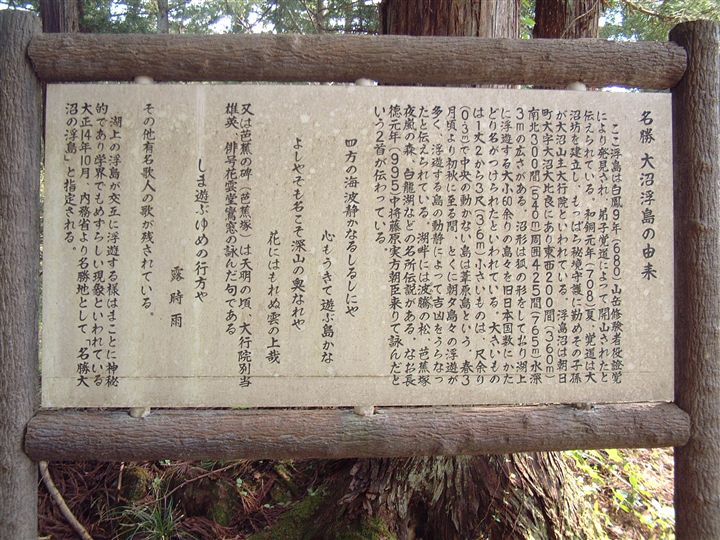 名勝 大沼浮島の由来
ここ浮島は白鳳9年(680)山岳修験者役證覚
により発見され、弟子覚道によって開山されたと
伝えられている。和銅元年(708)夏、覚道は大
沼坊を建立しもっぱら秘境守護に勤めその子孫
が大沼山主大行院といわれている。浮島沼は朝日
町大字大沼大比良にあり東西200間(360m)
南北300間(540m)周囲425間(765m)水深
3mの広さがある。沼形は狐の形をしており湖上
に浮遊する大小60余りの島々を旧日本国数にかた
どり名がつけられたといわれている。大きいもの
は1丈2から3尺(3.6m)小さいものは1尺余り
(0.3m)で中央の動かない島は葦原島という。春3
月頃より初秋に至る間、とくに朝夕島々の浮遊が
多く、浮遊する島の動静によって吉凶をうらなっ
たと伝えられている。湖畔には波籐の松、芭蕉塚
夜嵐の森、白龍湖などの名所伝説がある。なお長
徳元年(995)中将藤原実方朝臣乗りて詠んだと
いう2首が伝わっている。
四方の海波静かなるしるしにや
心もうきて遊ぶ島かな
よしやそもおちこそ深山の奥なれや
花にはもれぬ雲の上哉
又は芭蕉の碑(芭蕉塚)は天明の頃、大行院別当
雄英、俳号花雲堂鶯窓の詠んだ句である
しま遊ぶゆめの行方や
露時雨
その他有名歌人の歌が残されている。
湖上の浮島が交互に浮遊する様はまことに神秘
的であり学界でもめずらしい現象といわれている
大正14年10月、内務省より名勝地として「名勝大
沼の浮島」と指定される。